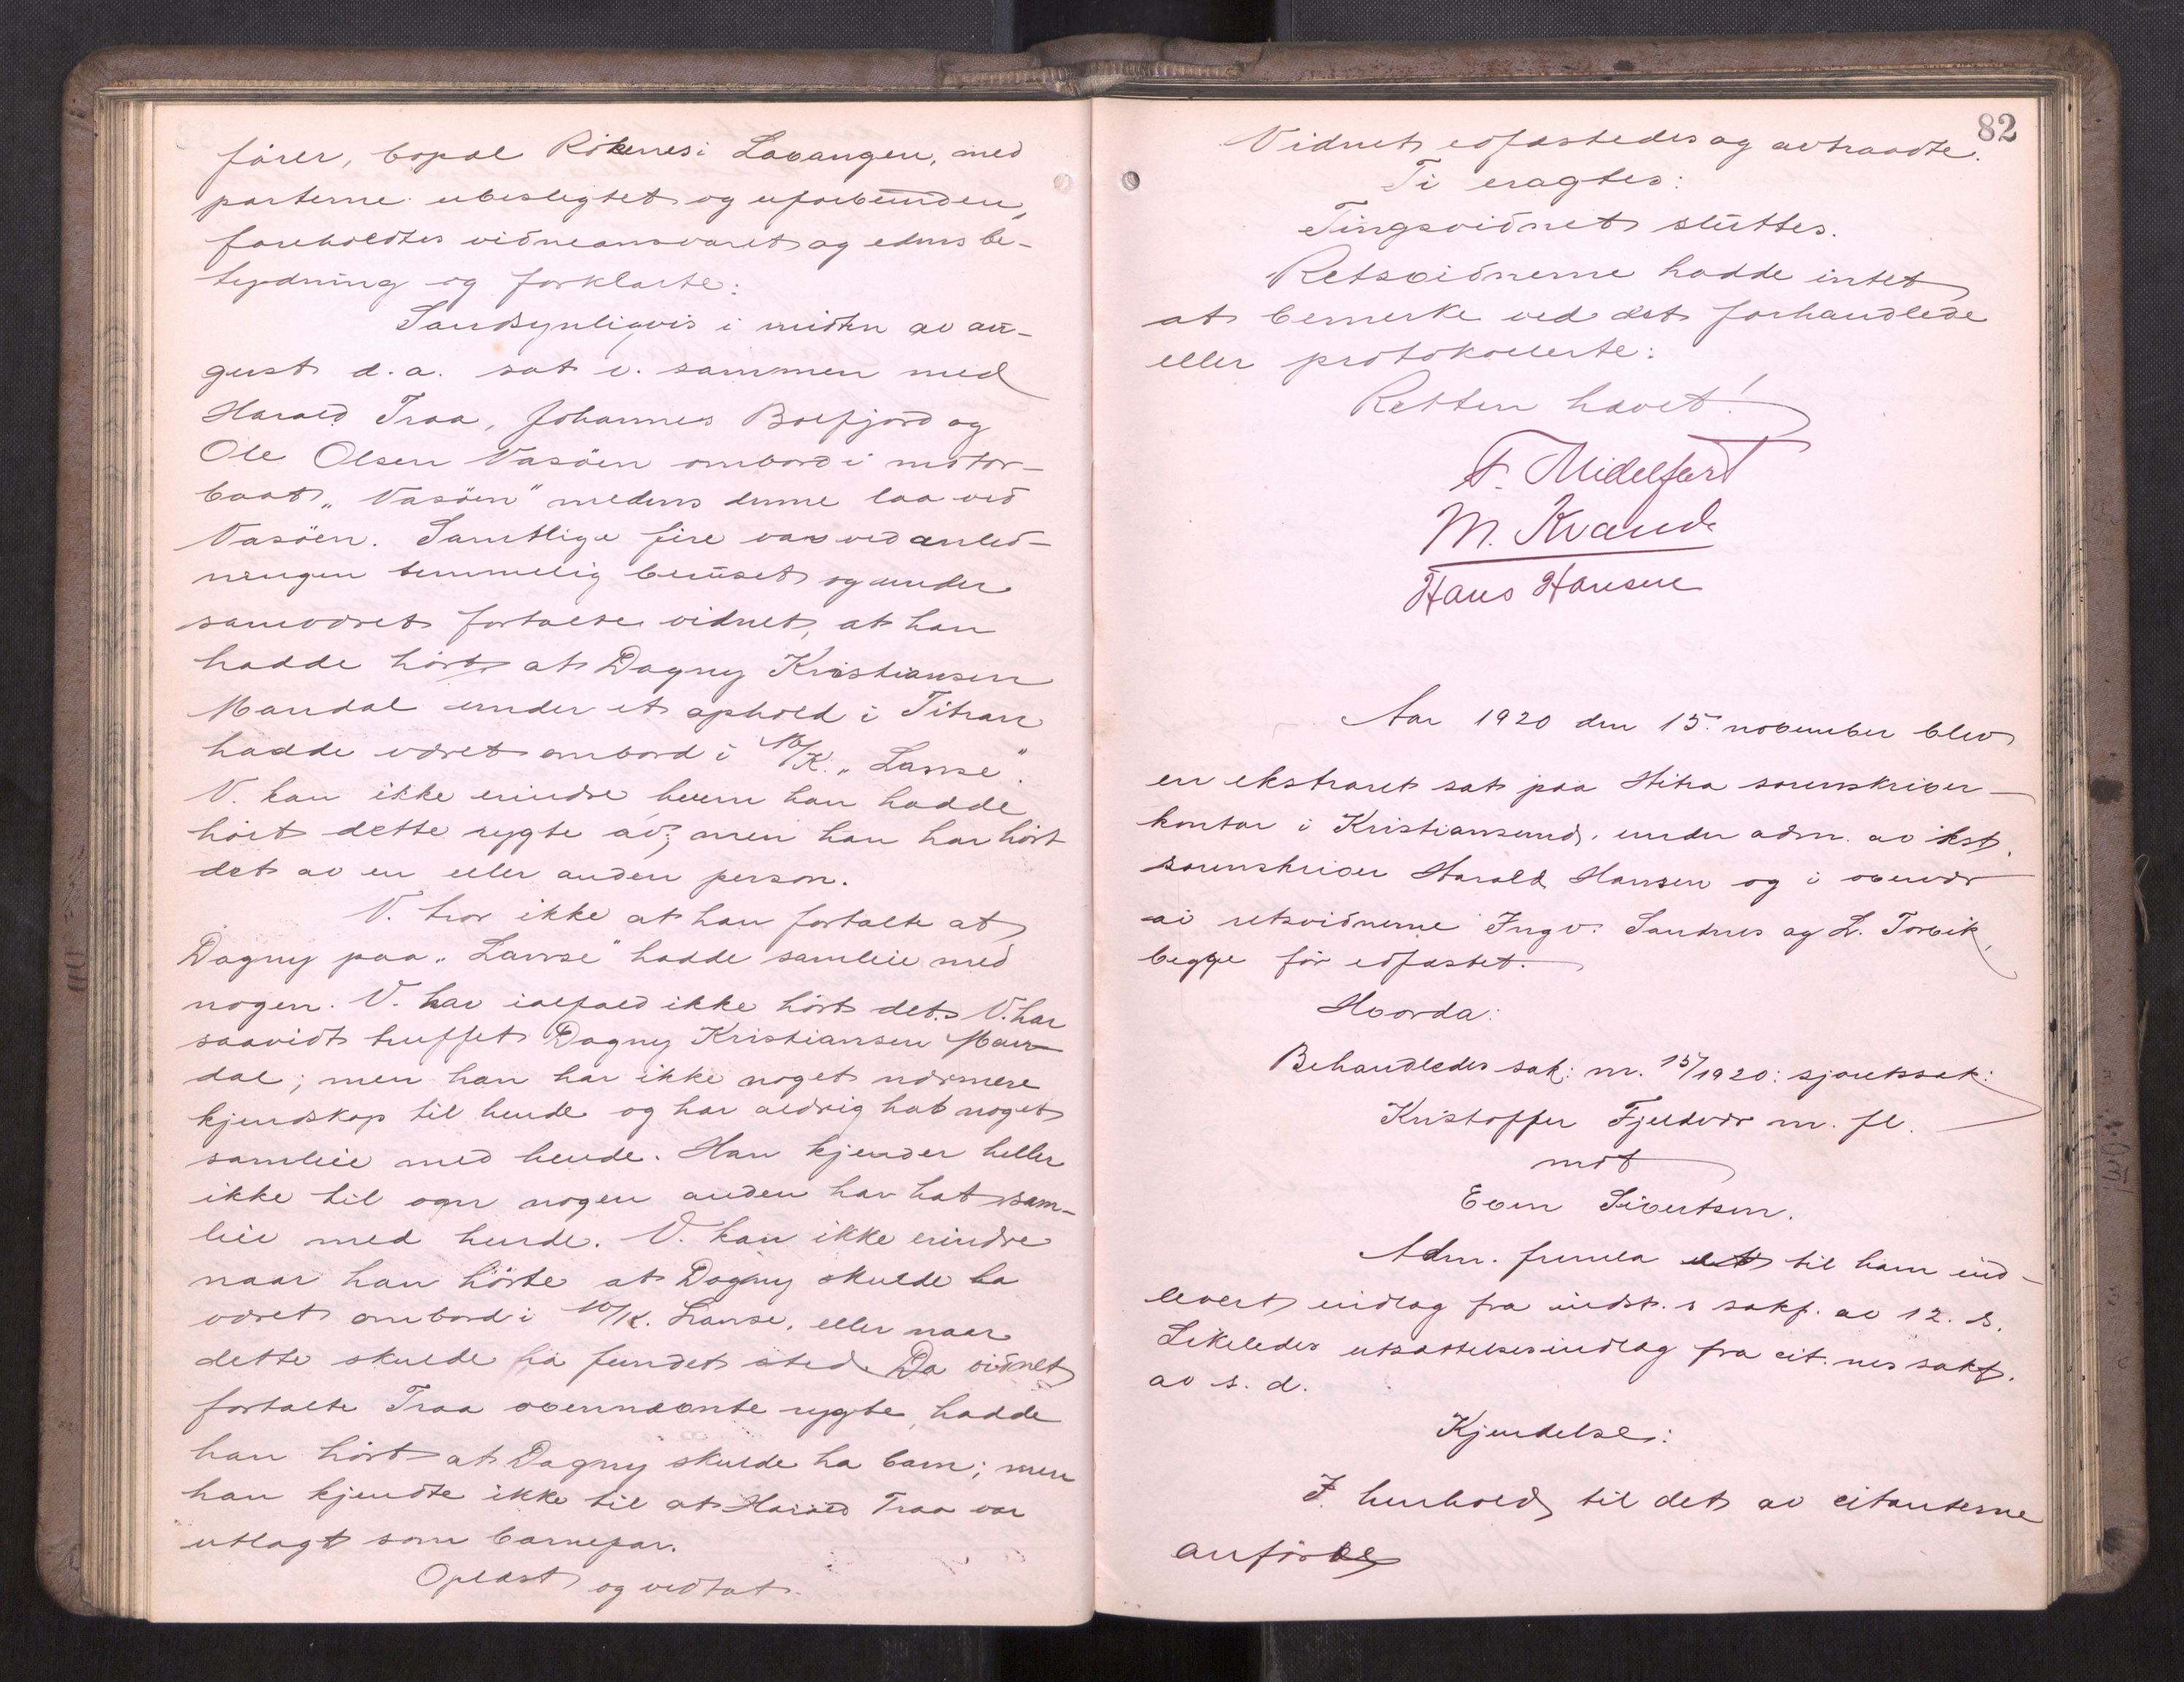 fører, bopæl Rökenes i Lavangen, med
parterne ubeslegtet og uforbunden,
foreholdtes vidneansvaret og edens be-
tydning og forklarte:
Sandsynligvis i midten av au-
gust d.a. sat v. sammen med
Harald Traa, Johannes Bolfjord og
Ole Olsen Vasöen ombord i motor-
baat „Vasöen" medens denne laa ved
Vasöen. Samtlige fire var ved anled-
ningen temmelig beruset og under
samværet fortalte vidnet, at han
hadde hört at Dagny Kristiansen
Mandal under et ophold i Titran
hadde været ombord i M/K. „Lanse".
V. kan ikke erindre hvem han hadde
hört dette rygte av; men han har hört
det av en eller anden person.
V. tror ikke at han fortalte at
Dagny paa „Lanse" hadde samleie med
nogen. V. har ialfald ikke hört det. V. har
saavidt truffet Dagny Kristiansen Man-
dal; men han har ikke noget nærmere
kjendskap til hende og har aldrig hat noget
samleie med hende. Han kjender heller
ikke til om nogen anden har hat sam-
leie med hende. V. kan ikke erindre
naar han hörte at Dagny skulde ha
været ombord i M/K. Lanse, eller naar
dette skulde ha fundet sted. Da vidnet
fortalte Traa ovennævnte rygte, hadde
han hört at Dagny skulde ha barn; men
han kjendte ikke til at Harald Traa var
utlagt som barnefar.
Oplæst og vedtat.
82
Vidnet edfæstedes og avtraadte.
Ti eragtes:
Tingsvidnet sluttes.
Retsvidnerne hadde intet
at bemerke ved det forhandlede
eller protokollerte:
Retten hævet!
F. Midelfart
M. Kvande
Hans Hansen
Aar 1920 den 15. november blev
en ekstraret sat paa Hitra sorenskriver-
kontor i Kristiansund, under adm. av kst.
sorenskriver Harald Hansen og i overvær
av retsvidnerne Ingv. Sandnes og L. Torvik,
begge för edfæstet.
Hvorda:
Behandledes sak: nr. 15/1920: sjøretssak:
Kristoffer Fjeldvær m. fl.
mot
Even Sivertsen.
Adm. fremla det til ham ind-
levert indlag fra indst. s sakf. av 12. ds.
Likeledes utsættelsesindlag fra cit. nes sakf.
av s. d.
Kjendelse:
I henhold til det av citanterne
anförte